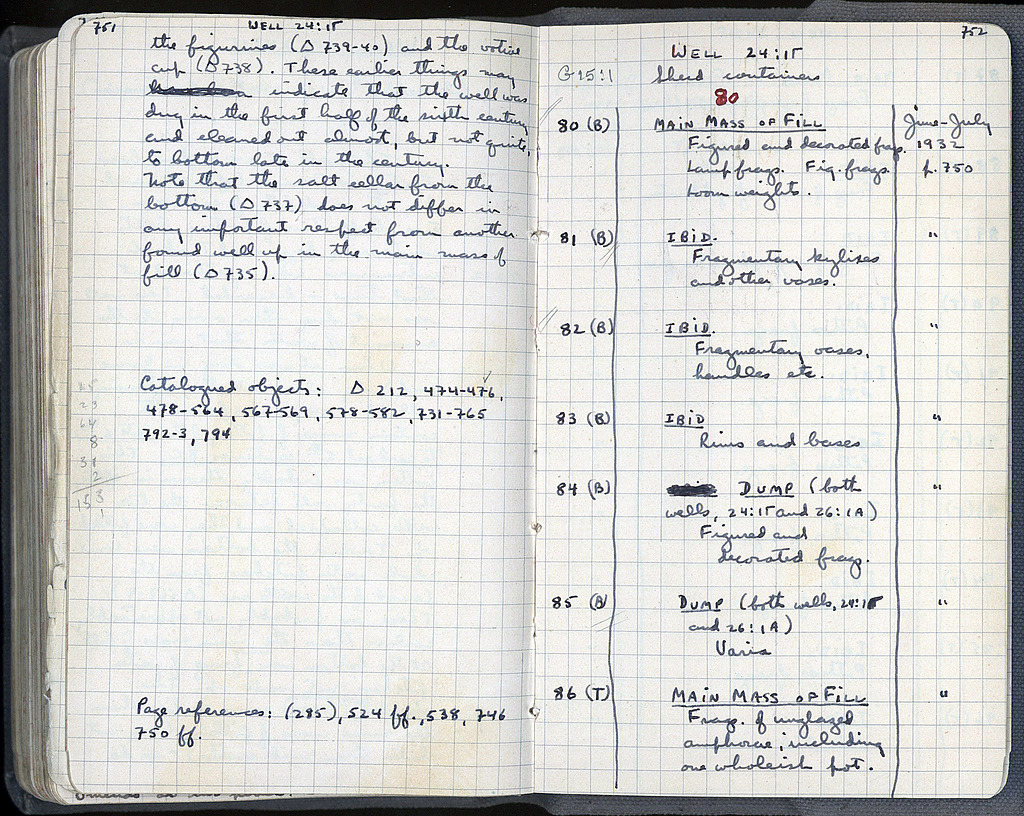 751
WELL 24:15
the figurines (Δ 739-40) and the votive
cup (Δ 738). These earlier things may
indicate that the well was
dug in the first half of the sixth century
and cleaned out almost, but not quite,
to bottom late in the century.
Note that the salt cellar from the
bottom (Δ 737) does not differ in
any important respect from another
found well up in the main mass of
fill (Δ 735).
Catalogued objects: Δ 212, 474-476,
478-564, 567-569, 578-582, 731-765
792-3, 794
23
64
8
31
2
153
1
Page references: (285), 524 ff., 538, 746
750 ff.
752
WELL 24:15
G 15:1 Sherd containers
80
80 (B) MAIN MASS OF FILL June-July
Figured and decorated frags. 1932
Lamp frags. Fig. frags. p. 750
Loom weights.
81 (B) IBID. "
Fragmentary kylixes
and other vases.
82 (B) IBID. "
Fragmentary vases,
handles etc.
83 (B) IBID "
Rims and bases
84 (B) DUMP (both "
wells, 24:15 and 26:1A)
Figured and
decorated frags.
85 (B) DUMP (both wells, 24:15 "
and 26:1A)
Varia
86 (T) MAIN MASS OF FILL "
Frags. of unglazed
amphorae, including
one wholeish pot.